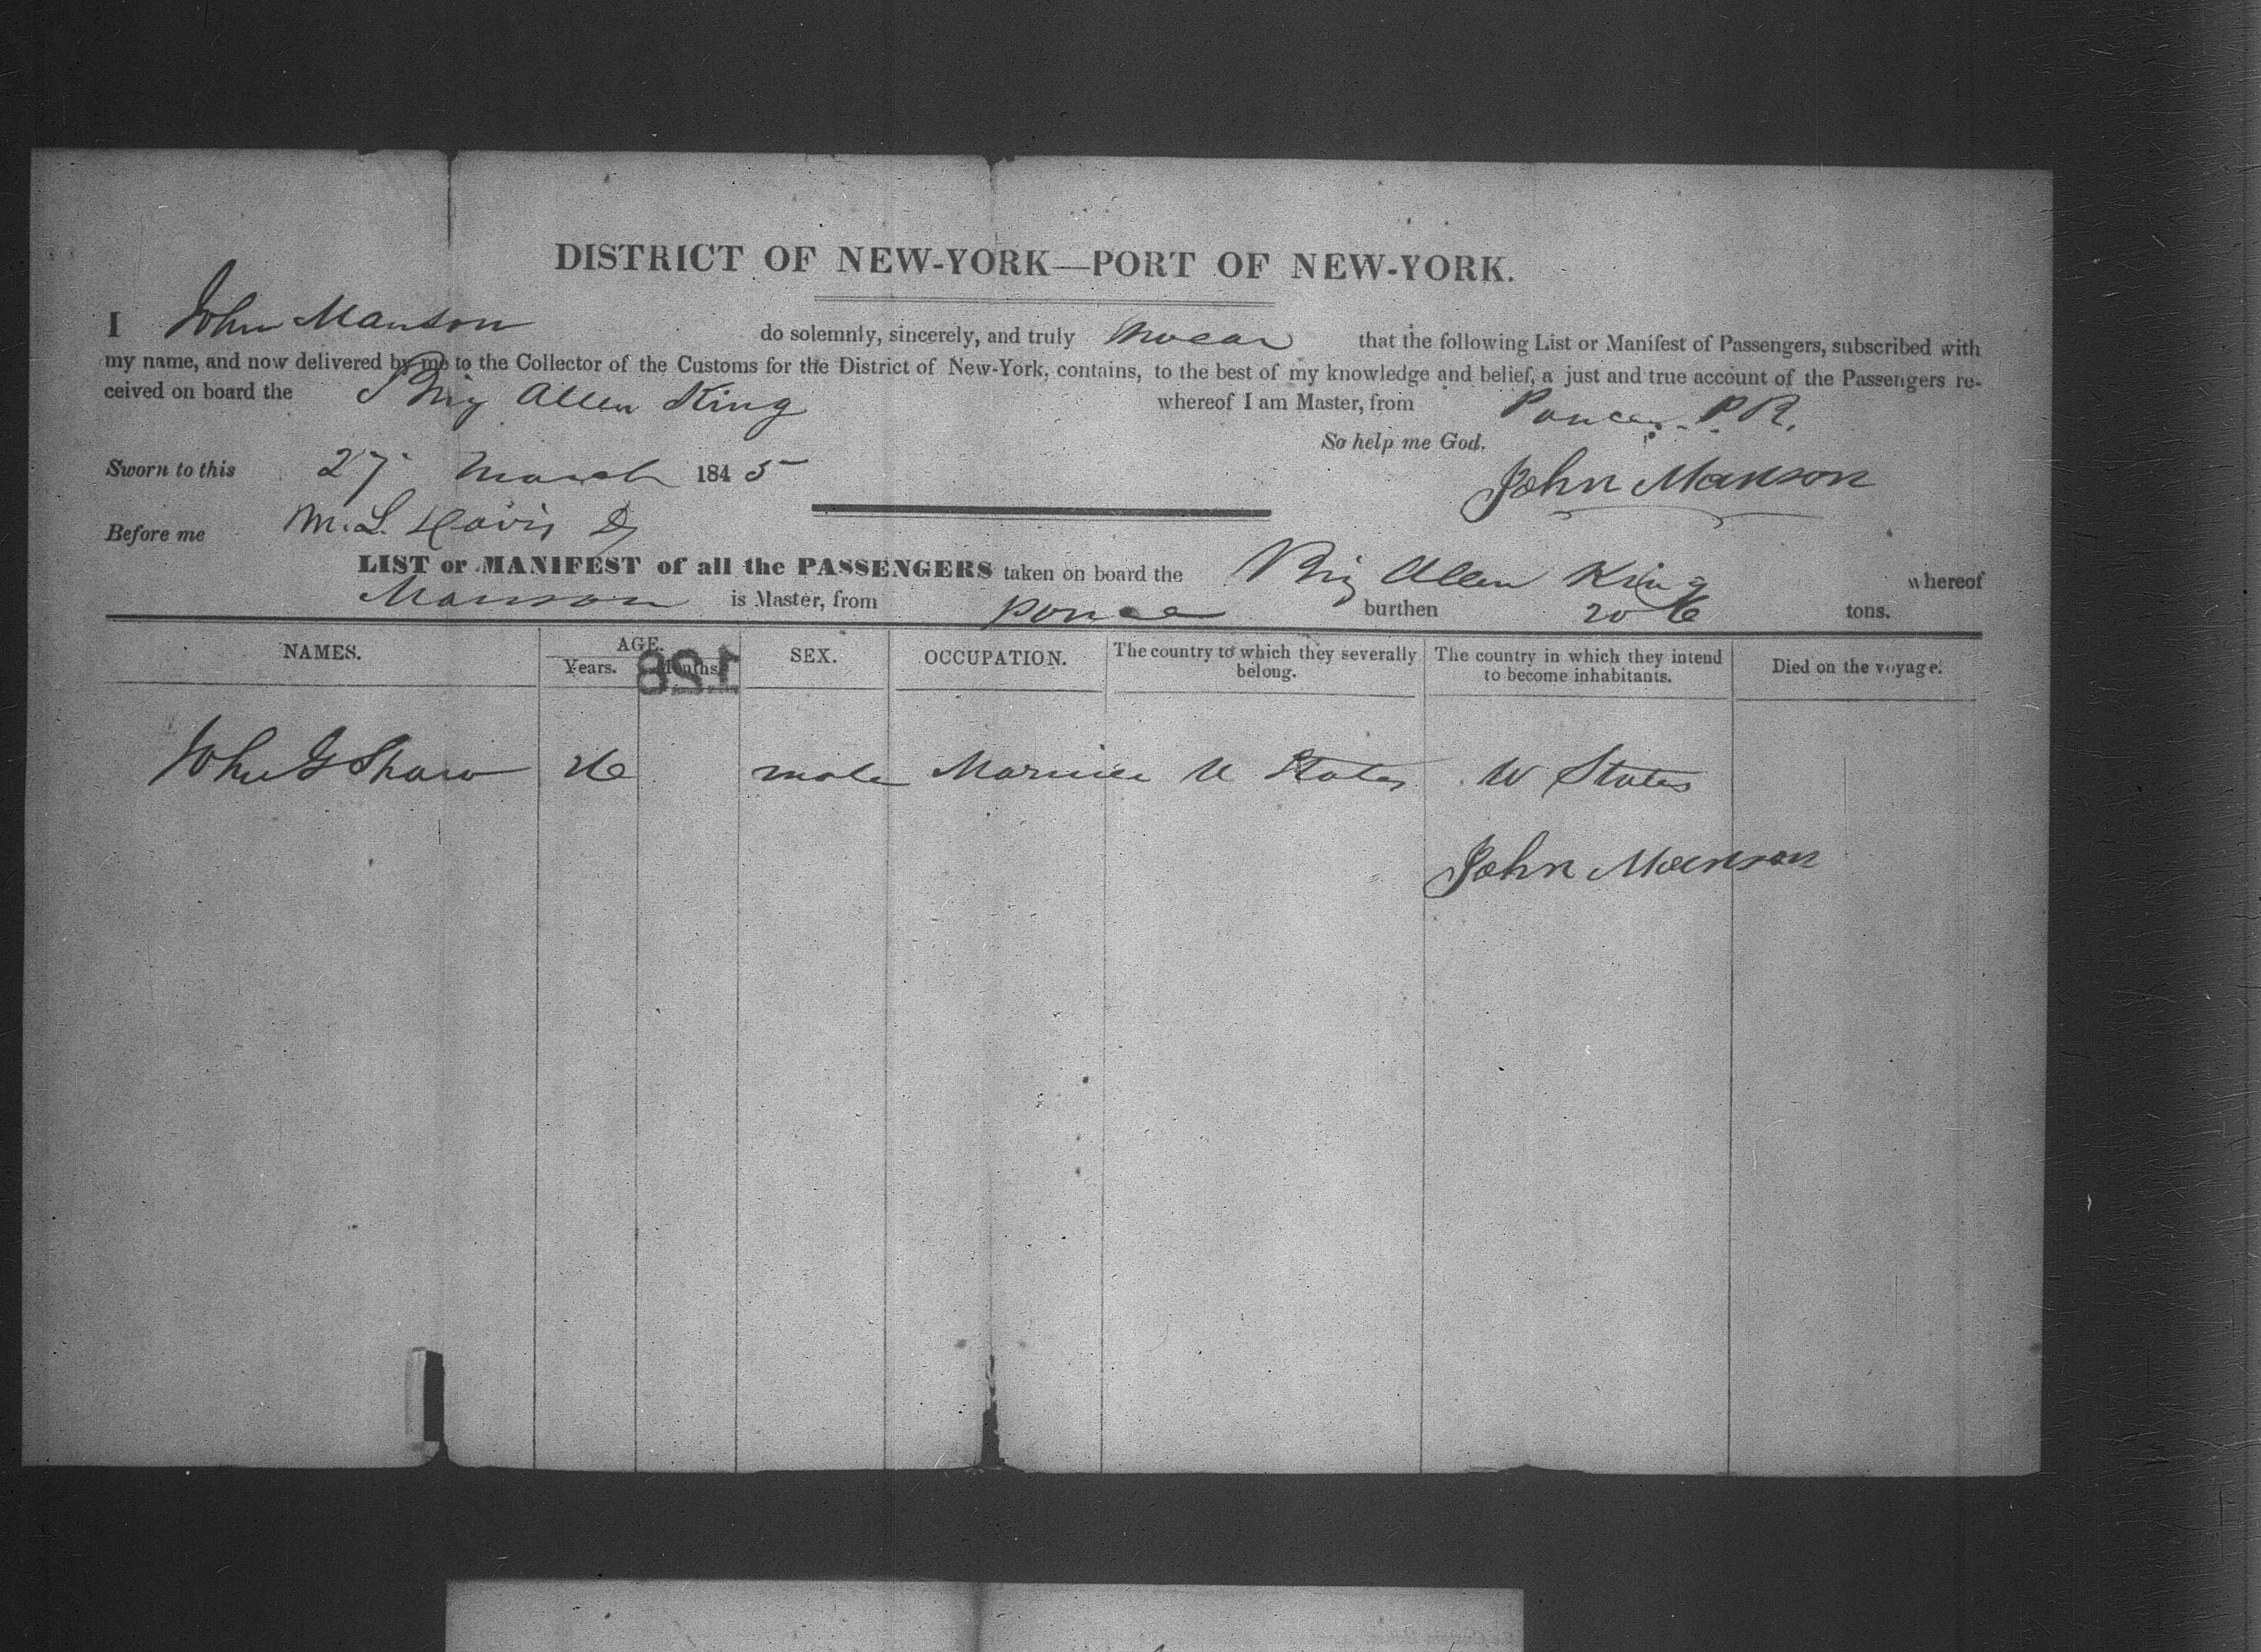 DISTRICT OF NEW-YORK—PORT OF NEW-YORK.
I John Manson do solemnly, sincerely, and truly swear that the following List or Manifest of Passengers, subscribed with
my name, and now delivered by me to the Collector of the Customs for the District of New-York, contains, to the best of my knowledge and belief, a just and true account of the Passengers re-
ceived on board the Brig Allen King whereof I am Master, from Ponce P.R.
So help me God.
Sworn to this 27 March 1845 John Manson
Before me M. L. Davis
LIST or MANIFEST of all the PASSENGERS taken on board the Brig Allen King whereof
Manson is Master, from Ponce burthen tons.
NAMES. AGE. Years. Months. SEX. OCCUPATION. The country to which they severally belong. The country in which they intend to become inhabitants. Died on the voyage.
128
John G Shaw 26 male Mariner U States U States
John Manson